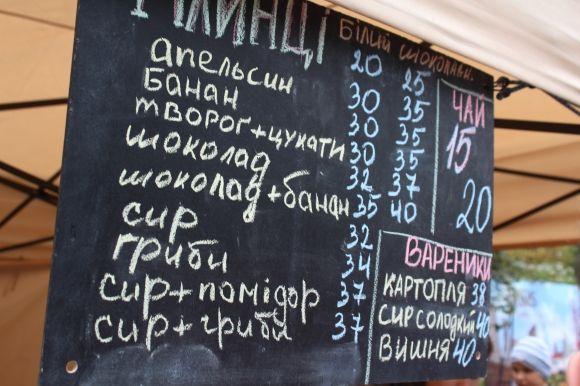 МЛИНЦІ
БІЛИЙ ШОКОЛАД.
20 25
апельсин 30 35
банан 30 35
творог+цукати 30 35
шоколад 32 37
шоколад+банан 35 40
сир 32
гриби 34
сир+помідор 37
сир+гриби 37
ЧАЙ
15
20
ВАРЕНИКИ
КАРТОПЛЯ 38
СИР СОЛОДКИЙ 40
ВИШНЯ 40